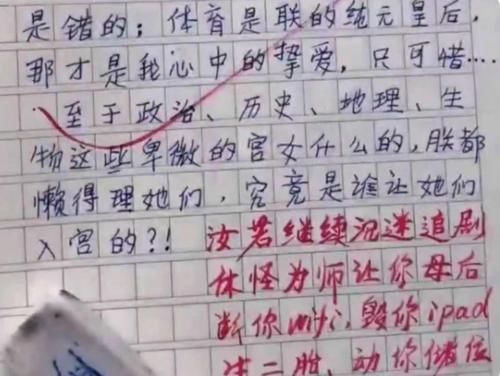 是错的；体育是联的纯元皇后，
那才是我心中的挚爱，只可惜…
至于政治、历史、地理、生
物这些卑微的宫女什么的，朕都
懒得理她们，究竟是谁让她们
入宫的？！
汝若继续沉迷追剧
休怪为师让你母后
断你wifi，毁你ipad
生二胎，动你储位